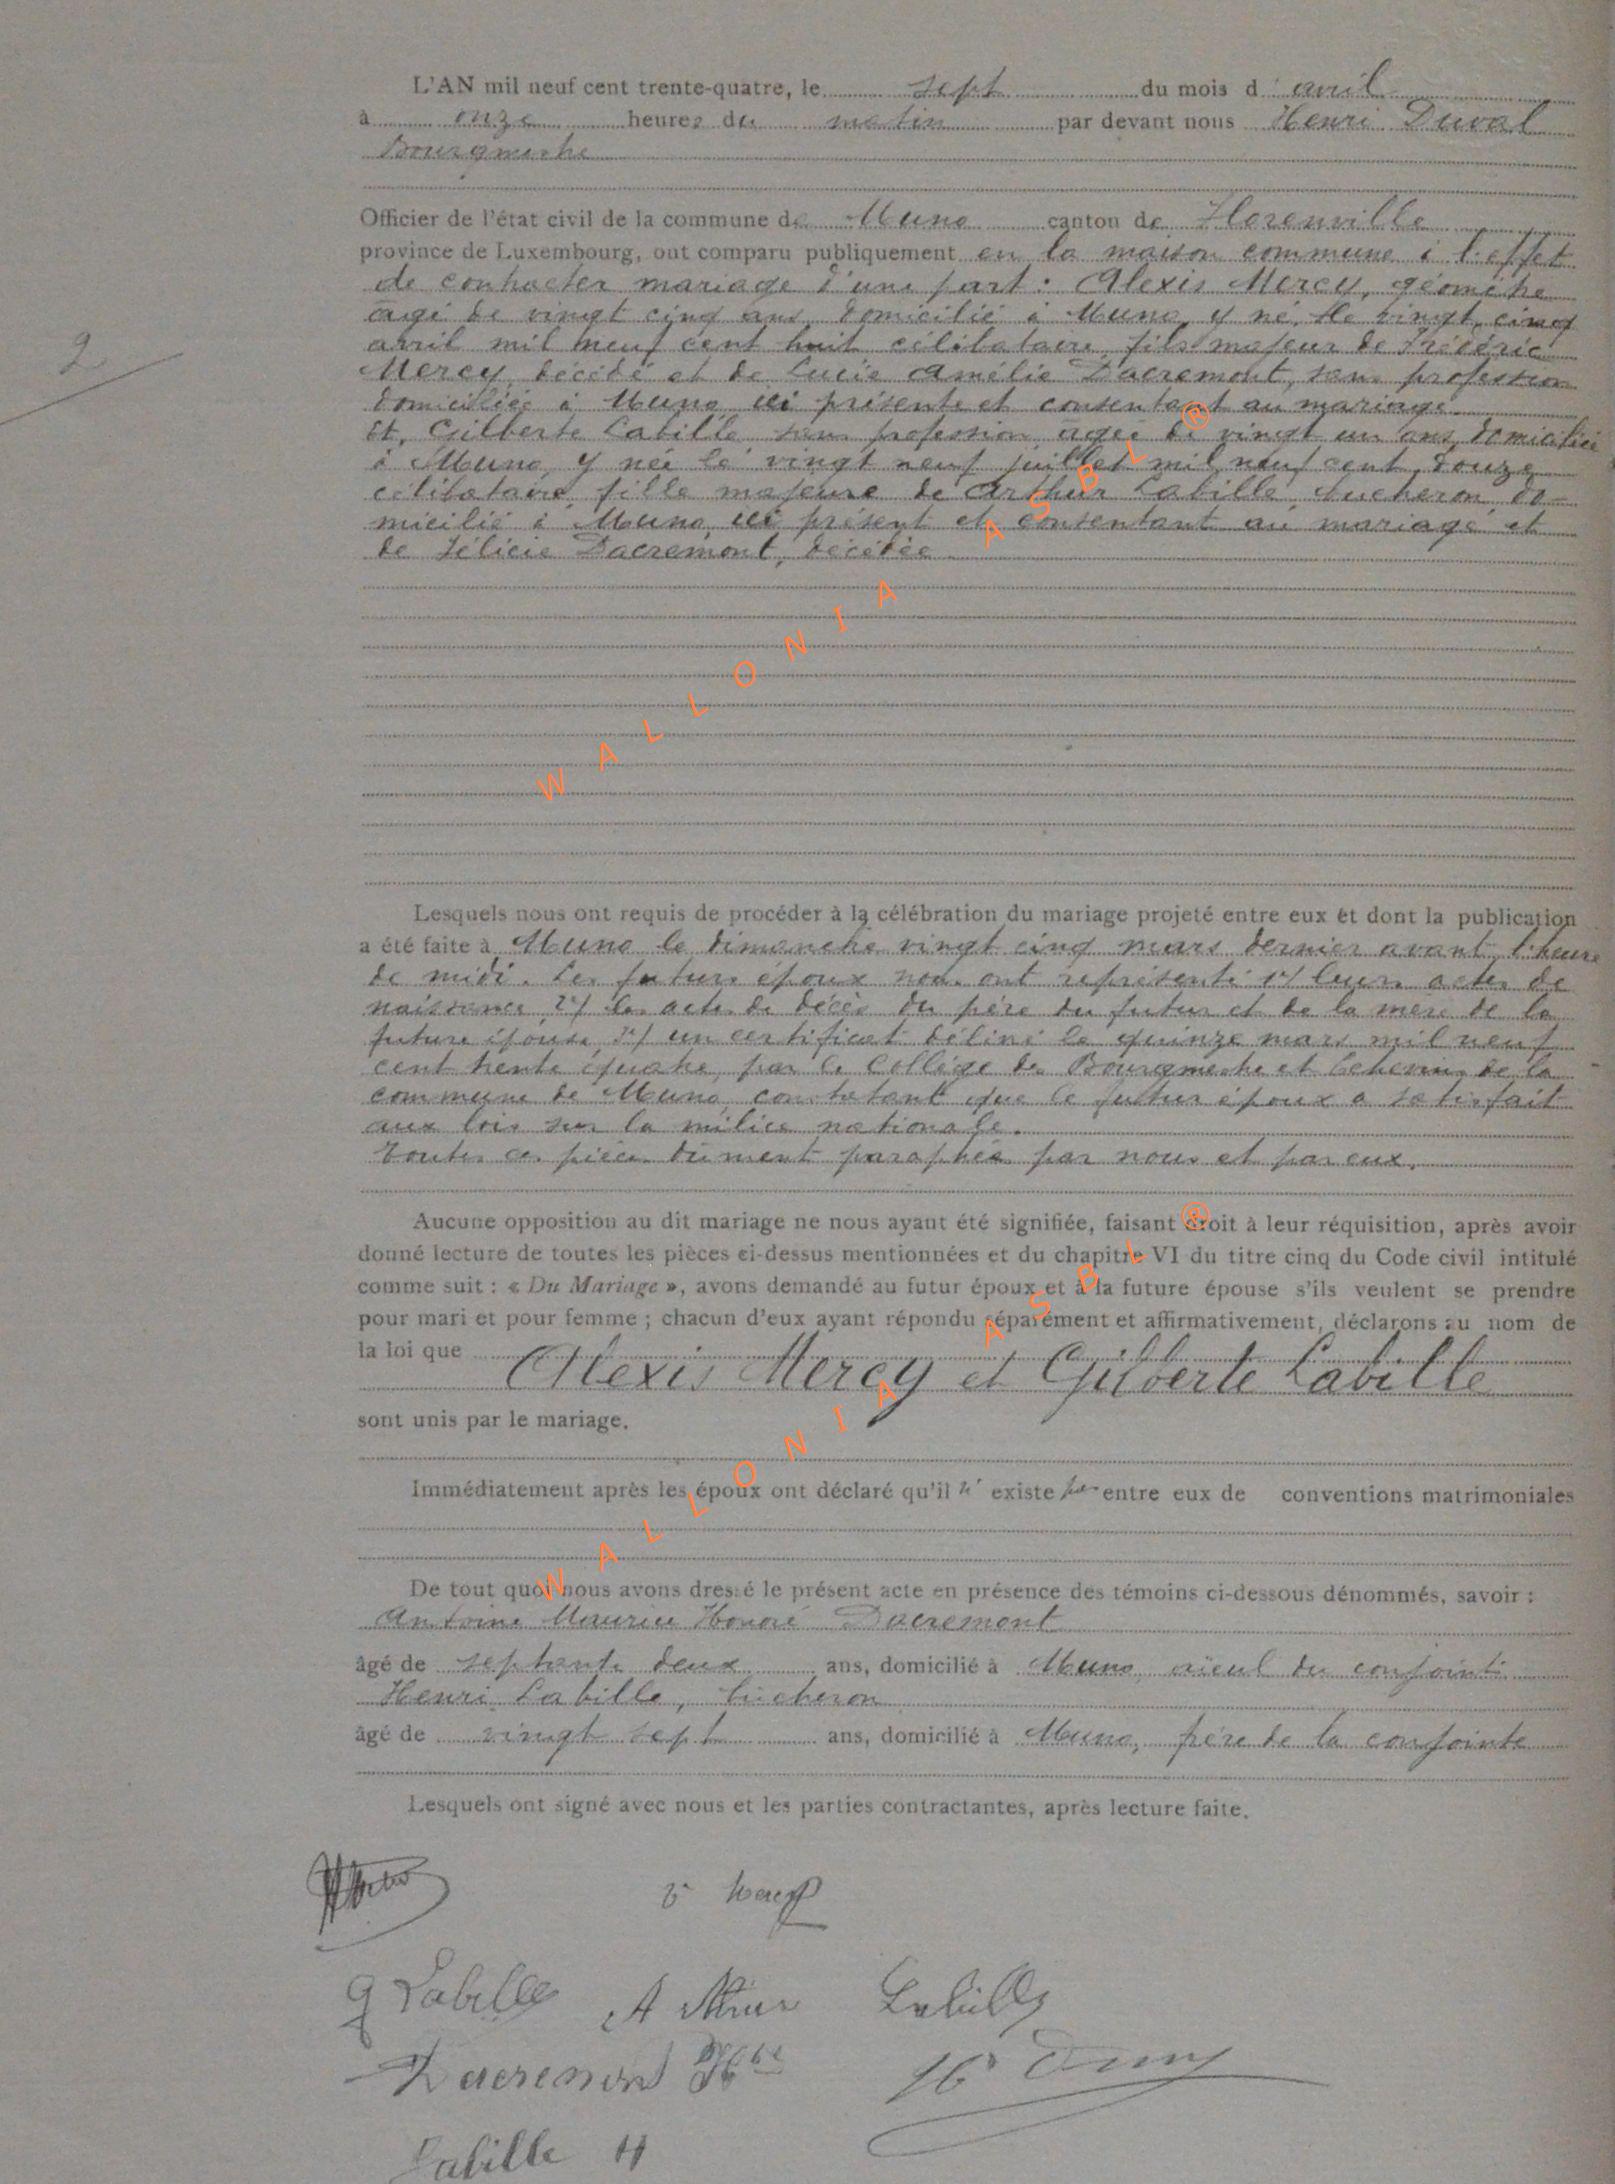 L'AN mil neuf cent trente-quatre, le sept du mois d'avril
à onze heures du matin par devant nous Henri Duval
Bourgmestre
Officier de l'état civil de la commune de Muno canton de Florenville
province de Luxembourg, ont comparu publiquement en la maison commune à l'effet
de contracter mariage d'une part : Alexis Mercy, géomètre
âgé de vingt cinq ans domicilié à Muno, y né, le vingt cinq
avril mil neuf cent huit célibataire fils majeur de Frédéric
Mercy, décédé et de Lucie Amélie Dacremont, sans profession
domiciliée à Muno ici présente et consentant au mariage.
Et, Gilberte Labille sans profession âgée de vingt un ans, domiciliée
à Muno, y née le vingt neuf juillet mil neuf cent douze
célibataire fille majeure de Arthur Labille, bucheron, do-
micilié à Muno, ici présent et consentant au mariage et
de Félicie Dacremont, décédée.
2
WALLONIA ASBL ®
Lesquels nous ont requis de procéder à la célébration du mariage projeté entre eux et dont la publication
a été faite à Muno le dimanche vingt cinq mars dernier avant l'heure
de midi. Les futurs époux nous ont représenté 1°/ leurs actes de
naissance, 2°/ les actes de décès du père du futur et de la mère de la
future épouse, 3°/ un certificat délivré le quinze mars mil neuf
cent trente quatre, par le Collège des Bourgmestre et Echevins de la
commune de Muno, constatant que le futur époux a satisfait
aux lois sur la milice nationale.
Toutes ces pièces dûment paraphées par nous et par eux.
Aucune opposition au dit mariage ne nous ayant été signifiée, faisant droit à leur réquisition, après avoir
donné lecture de toutes les pièces ci-dessus mentionnées et du chapitre VI du titre cinq du Code civil intitulé
comme suit : « Du Mariage », avons demandé au futur époux et à la future épouse s'ils veulent se prendre
pour mari et pour femme ; chacun d'eux ayant répondu séparément et affirmativement, déclarons au nom de
la loi que
Alexis Mercy et Gilberte Labille
sont unis par le mariage.
WALLONIA ASBL ®
Immédiatement après les époux ont déclaré qu'il n'existe pas entre eux de conventions matrimoniales
De tout quoi nous avons dressé le présent acte en présence des témoins ci-dessous dénommés, savoir :
Antoine Maurice Honoré Dacremont
âgé de septante deux ans, domicilié à Muno, aïeul du conjoint
Henri Labille, bûcheron
âgé de vingt sept ans, domicilié à Muno, frère de la conjointe
Lesquels ont signé avec nous et les parties contractantes, après lecture faite.
G Labille Labille
Dacremont
Labille H